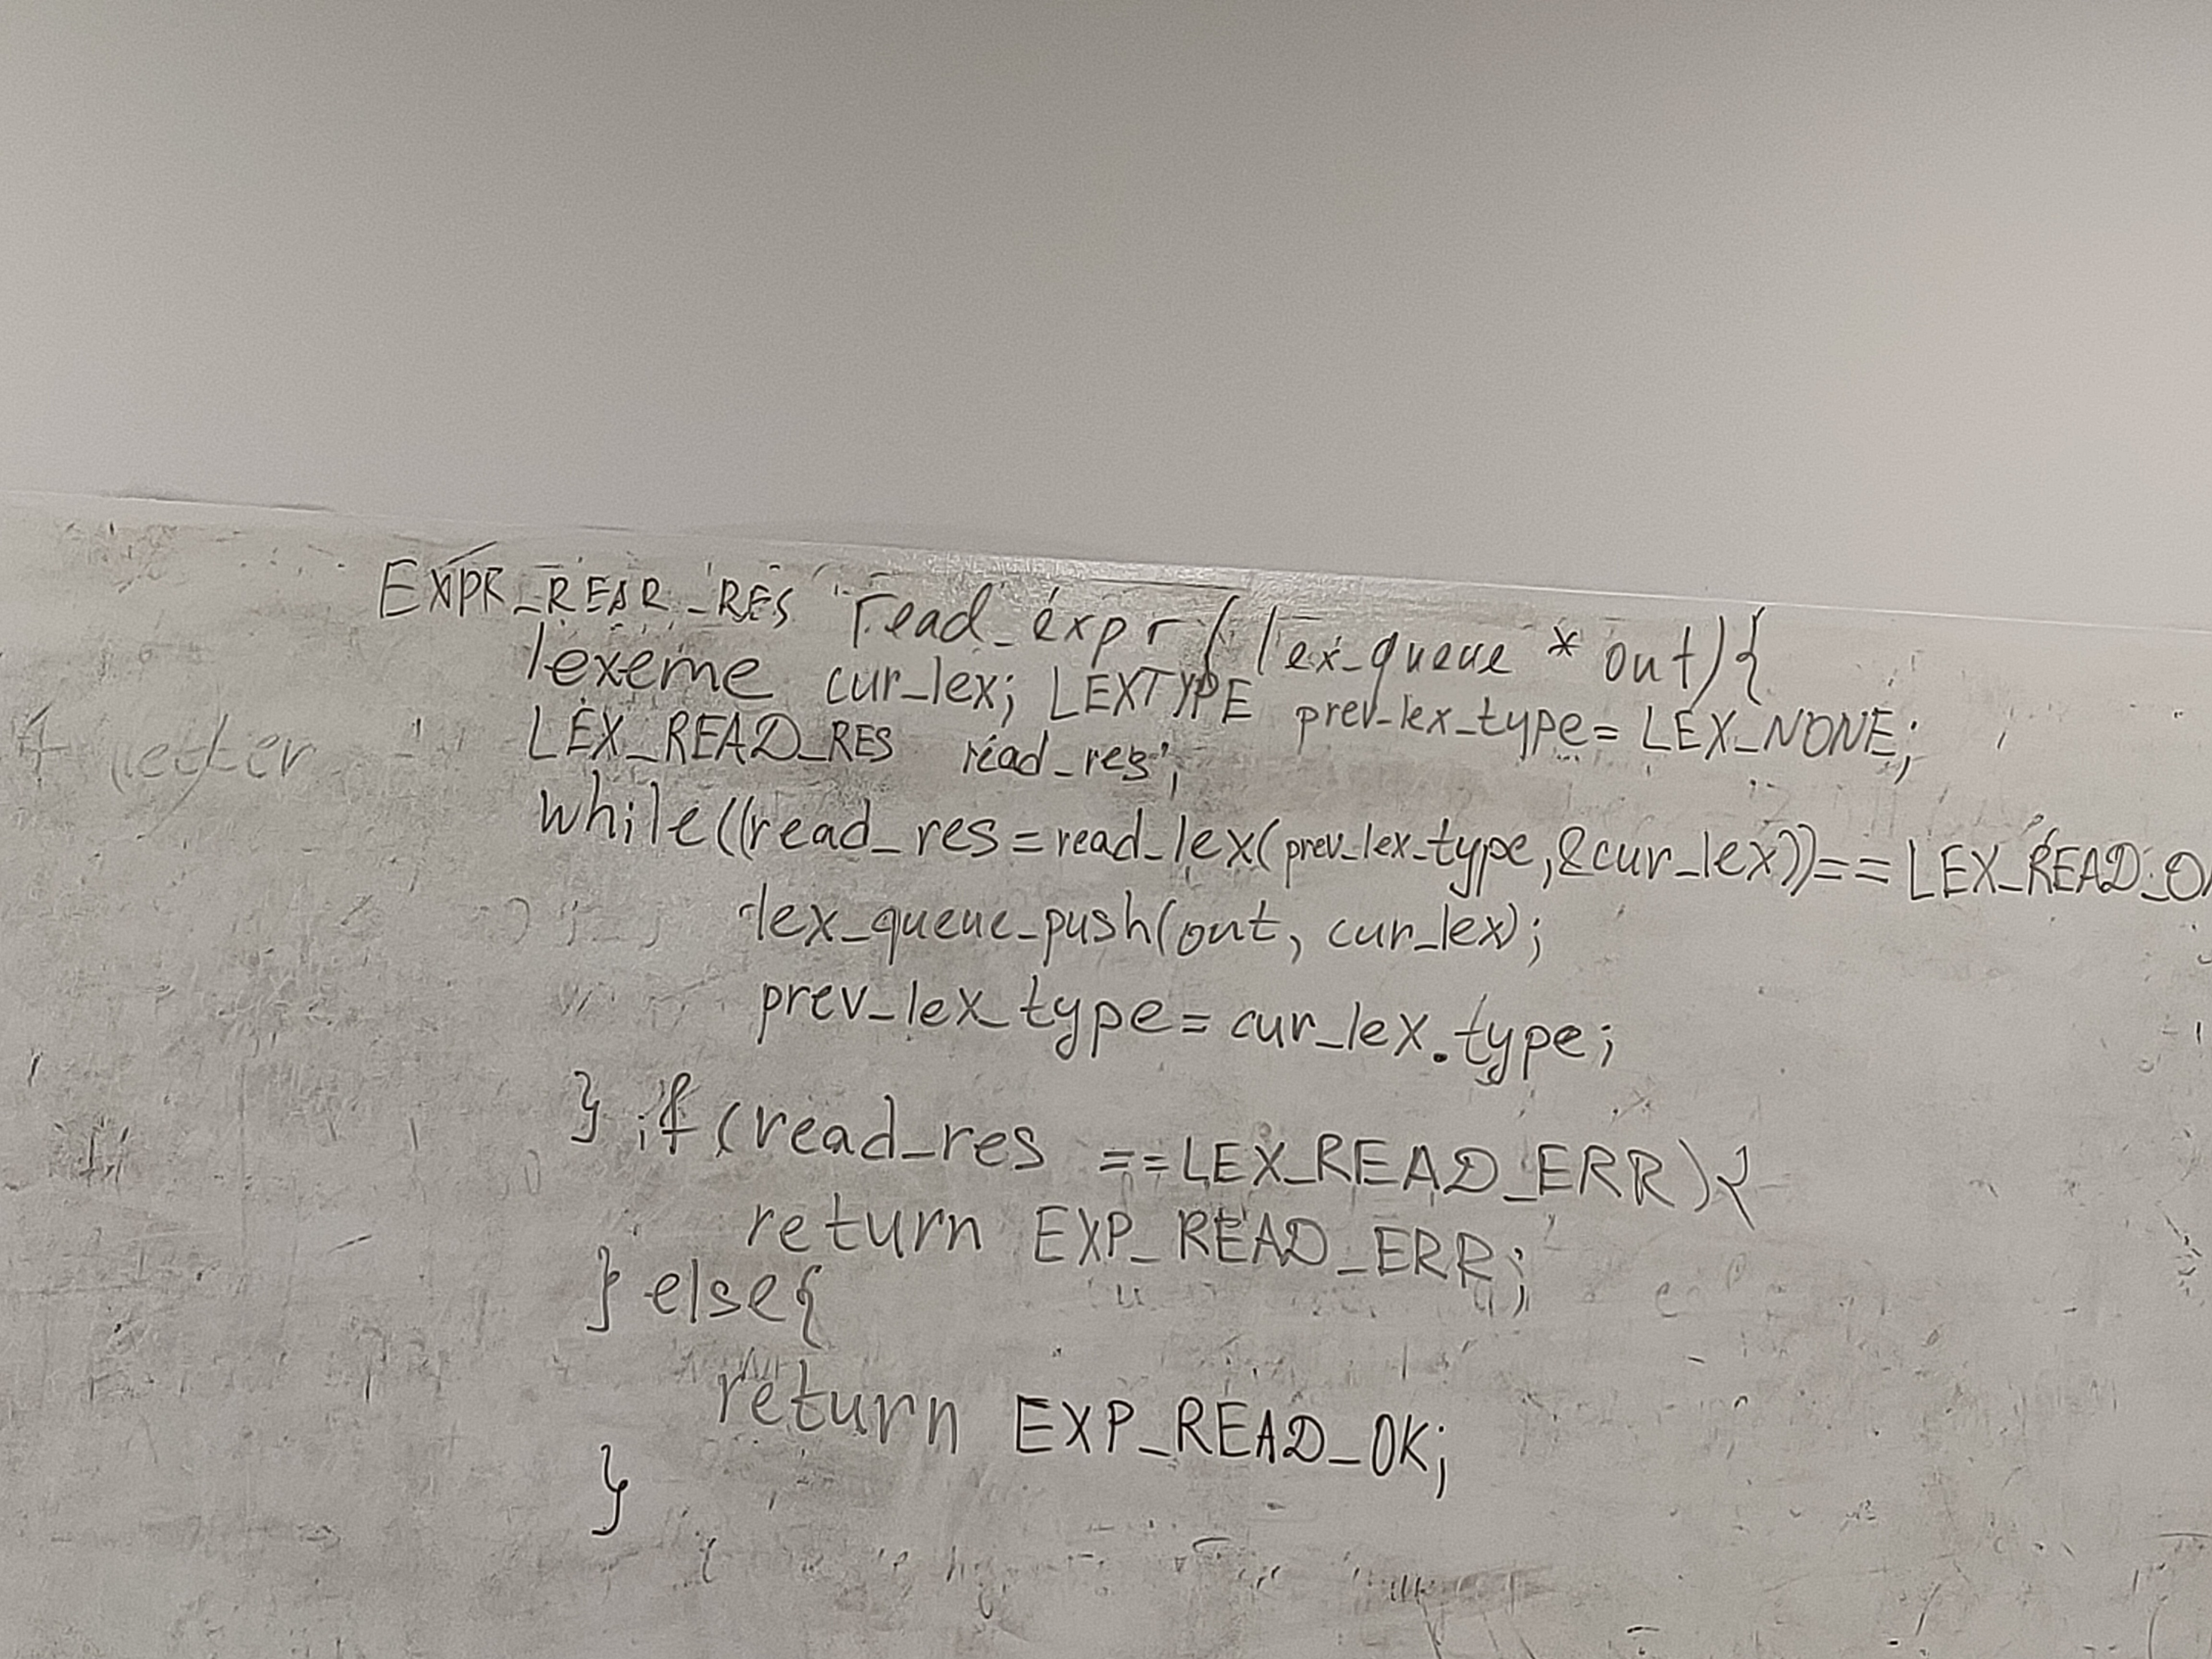 EXPR_READ_RES read_expr(lex_queue * out){
lexeme cur_lex; LEXTYPE prev_lex_type= LEX_NONE;
LEX_READ_RES read_res;
while((read_res=read_lex(prev_lex_type,&cur_lex))==LEX_READ_O
lex_queue_push(out, cur_lex);
prev_lex_type= cur_lex.type;
} if (read_res ==LEX_READ_ERR){
return EXP_READ_ERR;
} else{
return EXP_READ_OK;
}